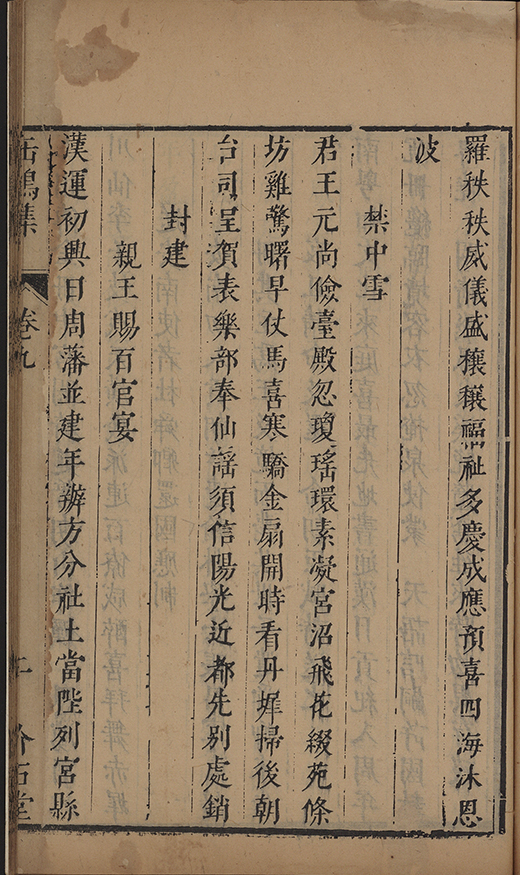 羅秩秩威儀盛穰穰福祉多慶成應預喜四海沐恩
波
禁中雪
君王元尚儉臺殿忽瓊瑤環素凝宮沼飛花綴苑條
坊雞驚曙早仗馬喜寒驕金扇開時看丹墀掃後朝
台司呈賀表樂部奉仙謠須信陽光近都先別處銷
封建
親王賜百官宴
漢運初興日周藩並建年辦方分社土當陛列宮縣
缶鳴集
卷九
二
介石堂